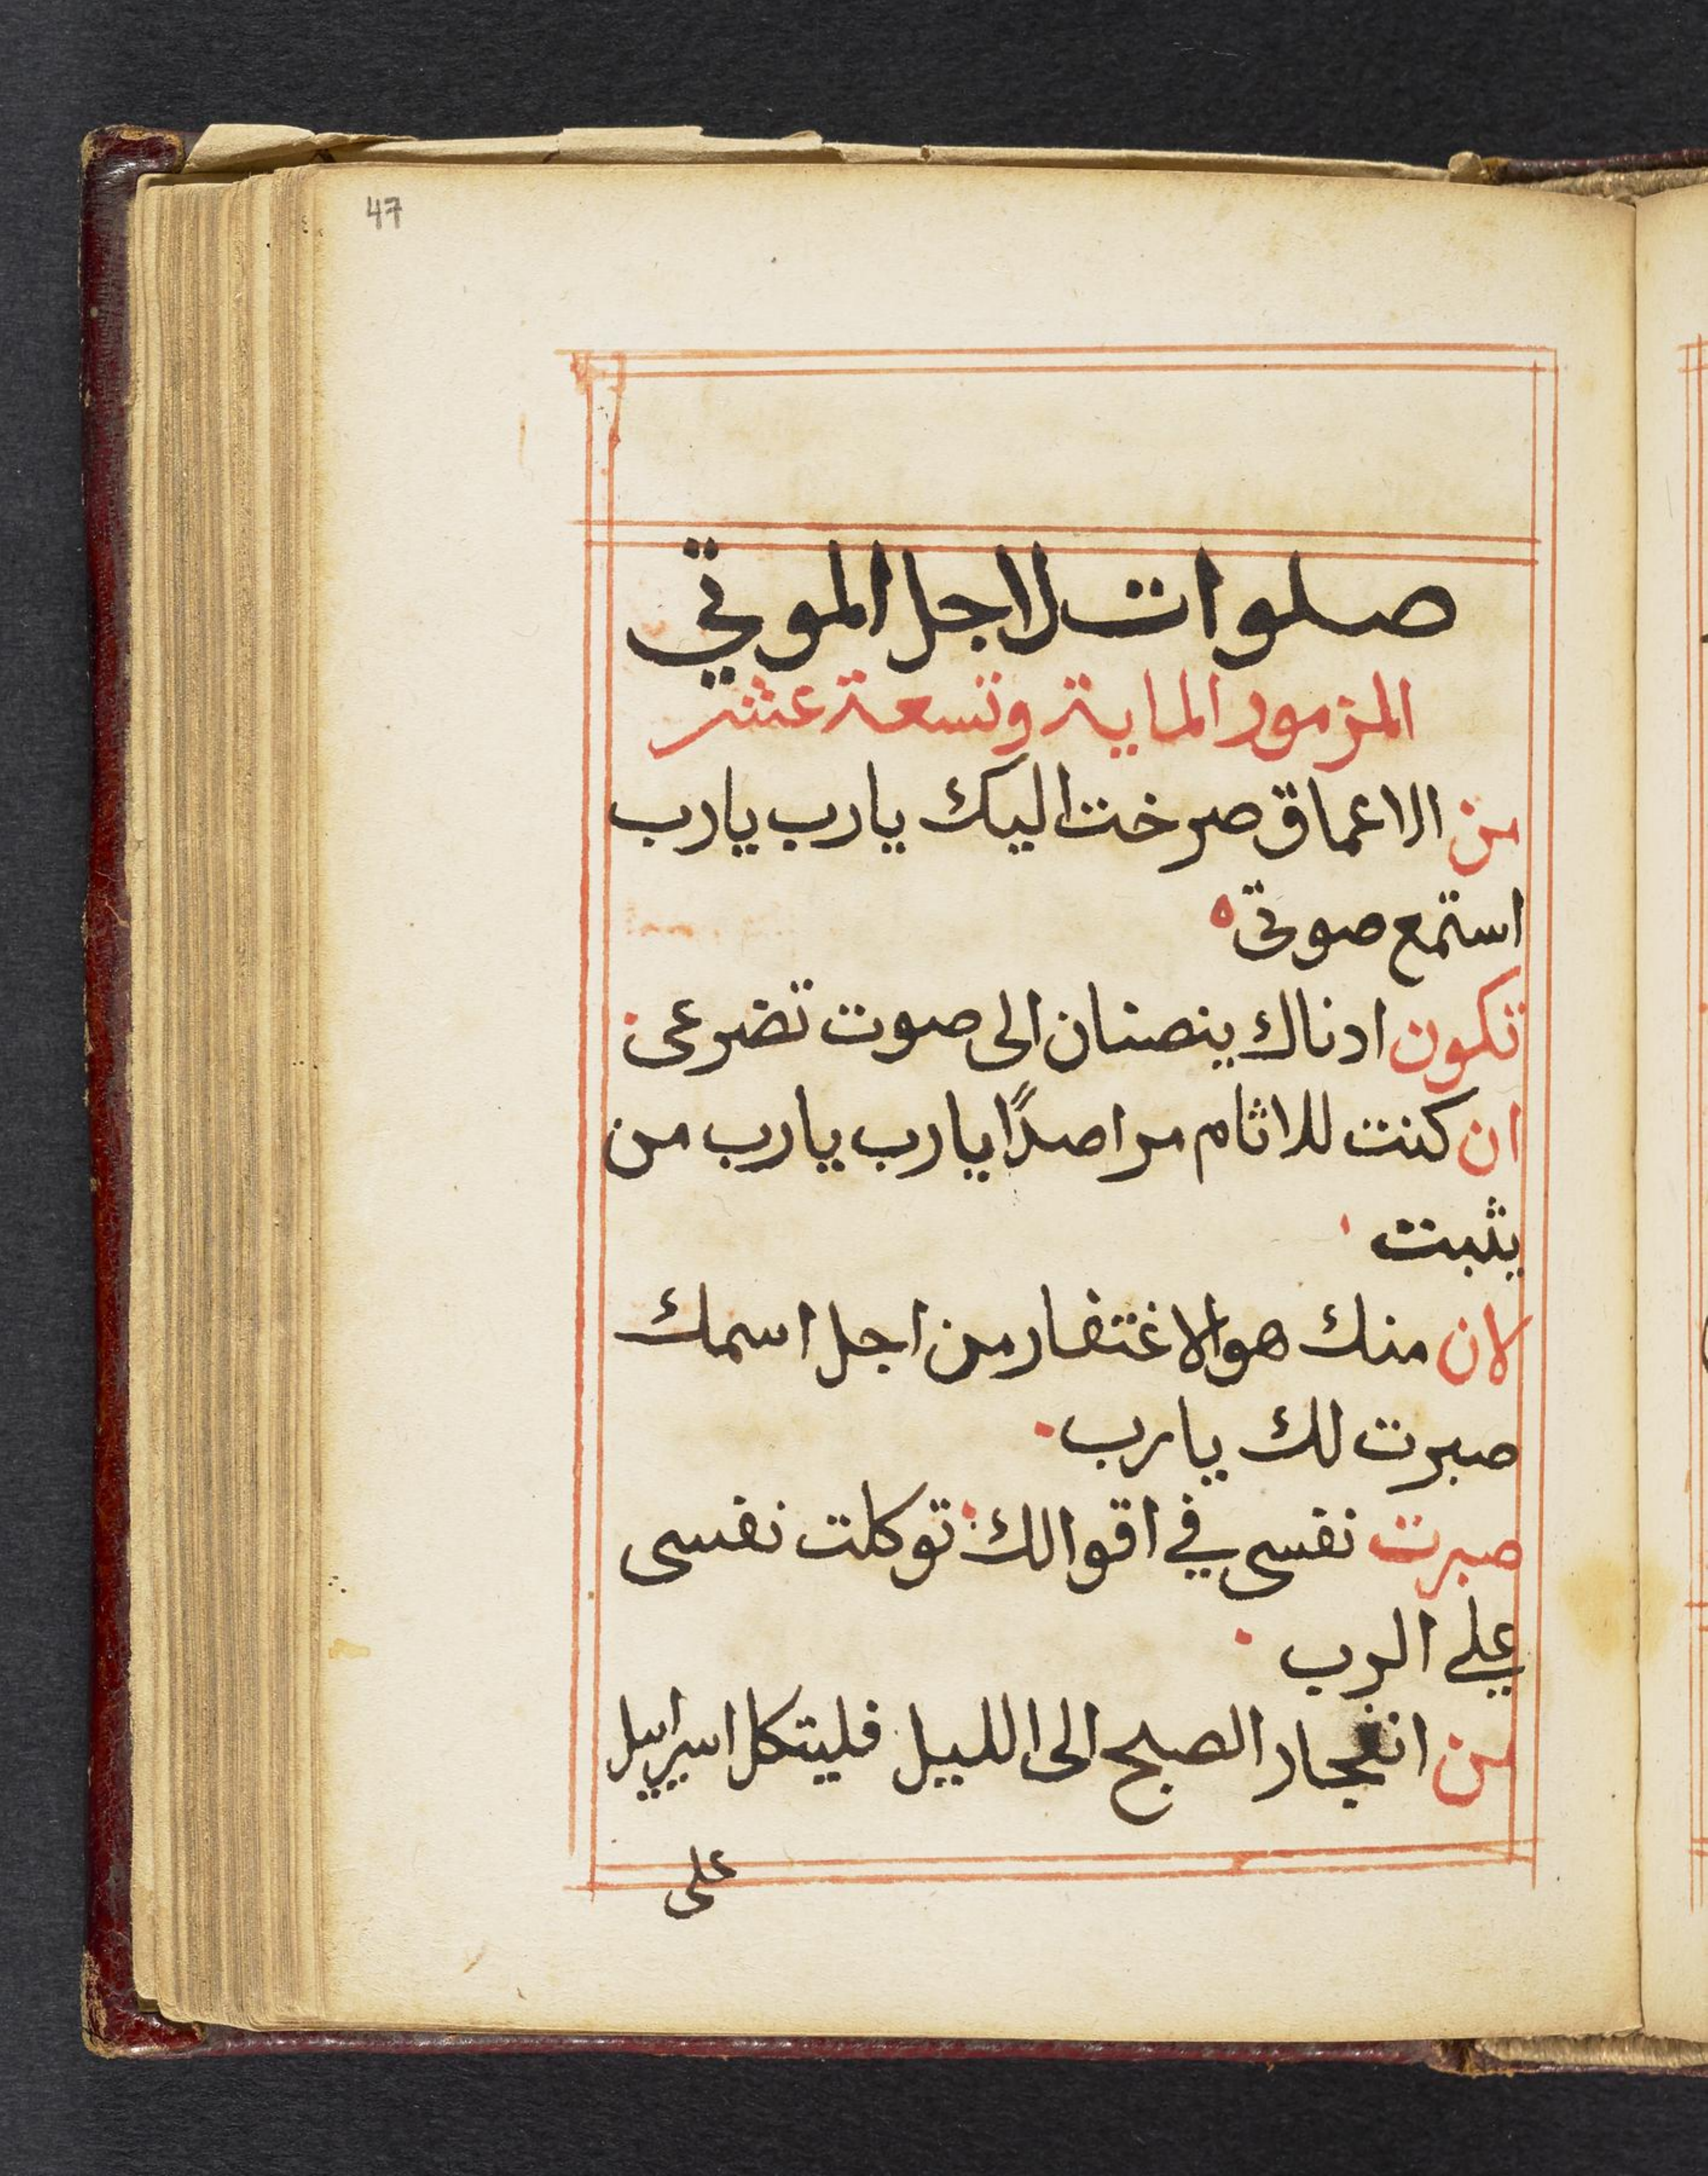 47
صلوات لاجل الموتي
المزمور الماية وتسعة عشر
من الاعماق صرخت اليك يارب يارب
استمع صوتي
تكون ادناك ينصتان الى صوت تضرعى
ان كنت للاثام مراصدًا يارب يارب من
يثبت
لان منك هو الاغتفار من اجل اسمك
صبرت لك يارب
صبرت نفسى في اقوالك توكلت نفسى
علي الرب
من انفجار الصبح الى الليل فليتكل اسراييل
على